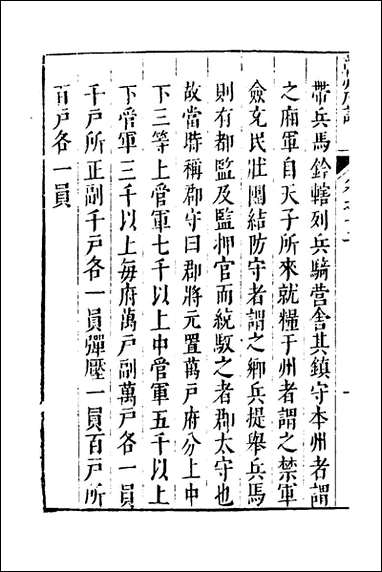 帶兵馬鈐轄列兵騎營舎其鎮守本州者謂
之廂軍自天子所來就糧于州者謂之禁軍
僉充民壯團結防守者謂之鄉兵提舉兵馬
則有都監及監押官而統馭之者郡太守也
故當時稱郡守曰郡將元置萬戶府分上中
下三等上管軍七千以上中管軍五千以上
下管軍三千以上每府萬戶副萬戶各一員
千戶所正副千戶各一員彈壓一員百戶所
百戶各一員